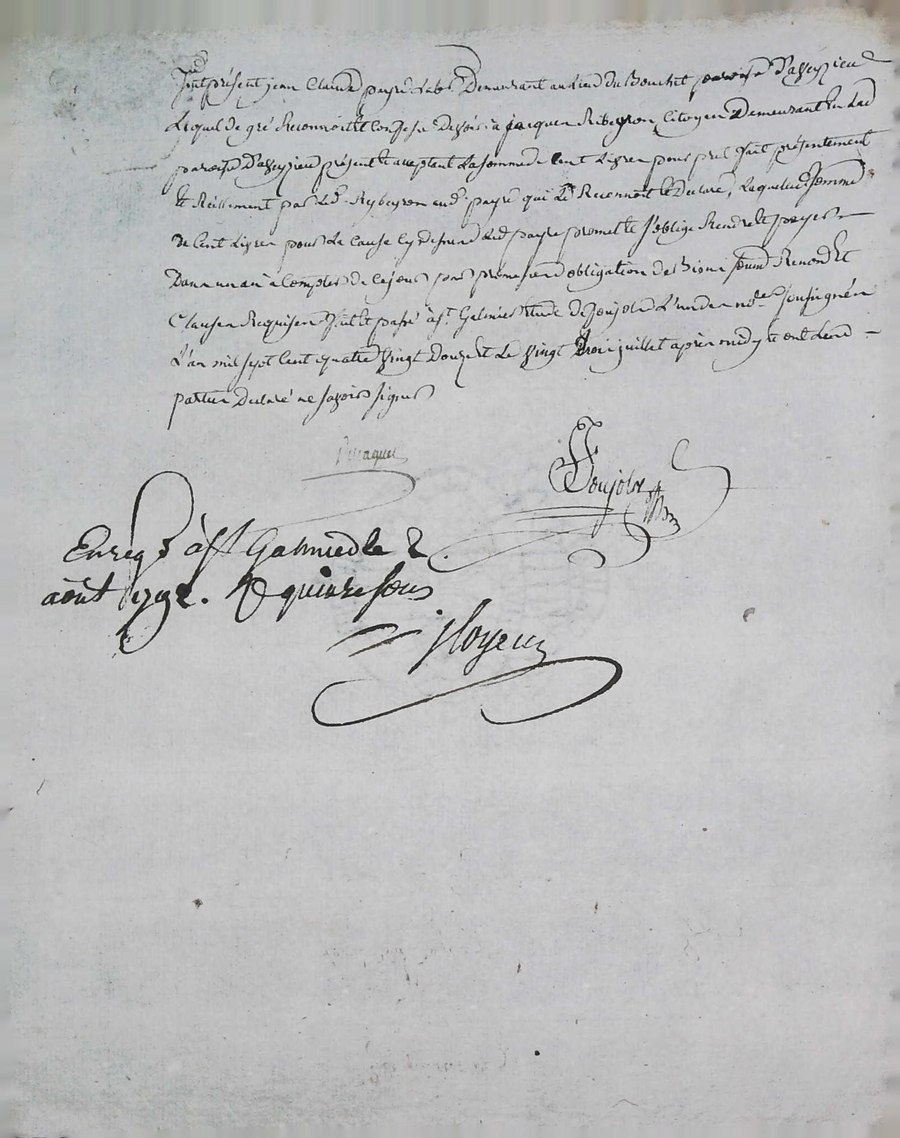 fut présent jean Claude payre labr Demeurant au lieu du Bouchet paroisse d'aveyzieu
Lequel de gré Reconnoit et Confesse devoir à jacques Ribeyron Citoyen Demeurant En lad
paroisse d'aveyzieu présent et acceptant La somme de Cent Livres pour pret fait présentement
et Réellement par Led Rybeyron aud payre qui Le Reconnoit et Declare, Laquelle somme
de Cent Livres pour La Cause Cy dessus Led payre promet et s'oblige Rendre et payer
Dans un an à Compter de Ce jour sous promesse obligation de Biens soum Renond et
Clauses Requises fait et passé à st Galmier Etude de Soujols L'un des nores soussignés
L'an mil sept Cent quatre Vingt Douze et Le Vingt Trois juillet après midy et ont Lesd
parties Declaré ne savoir signer
Soujols
Enregé à st Galmier le 2
août 1792. R quinze sous